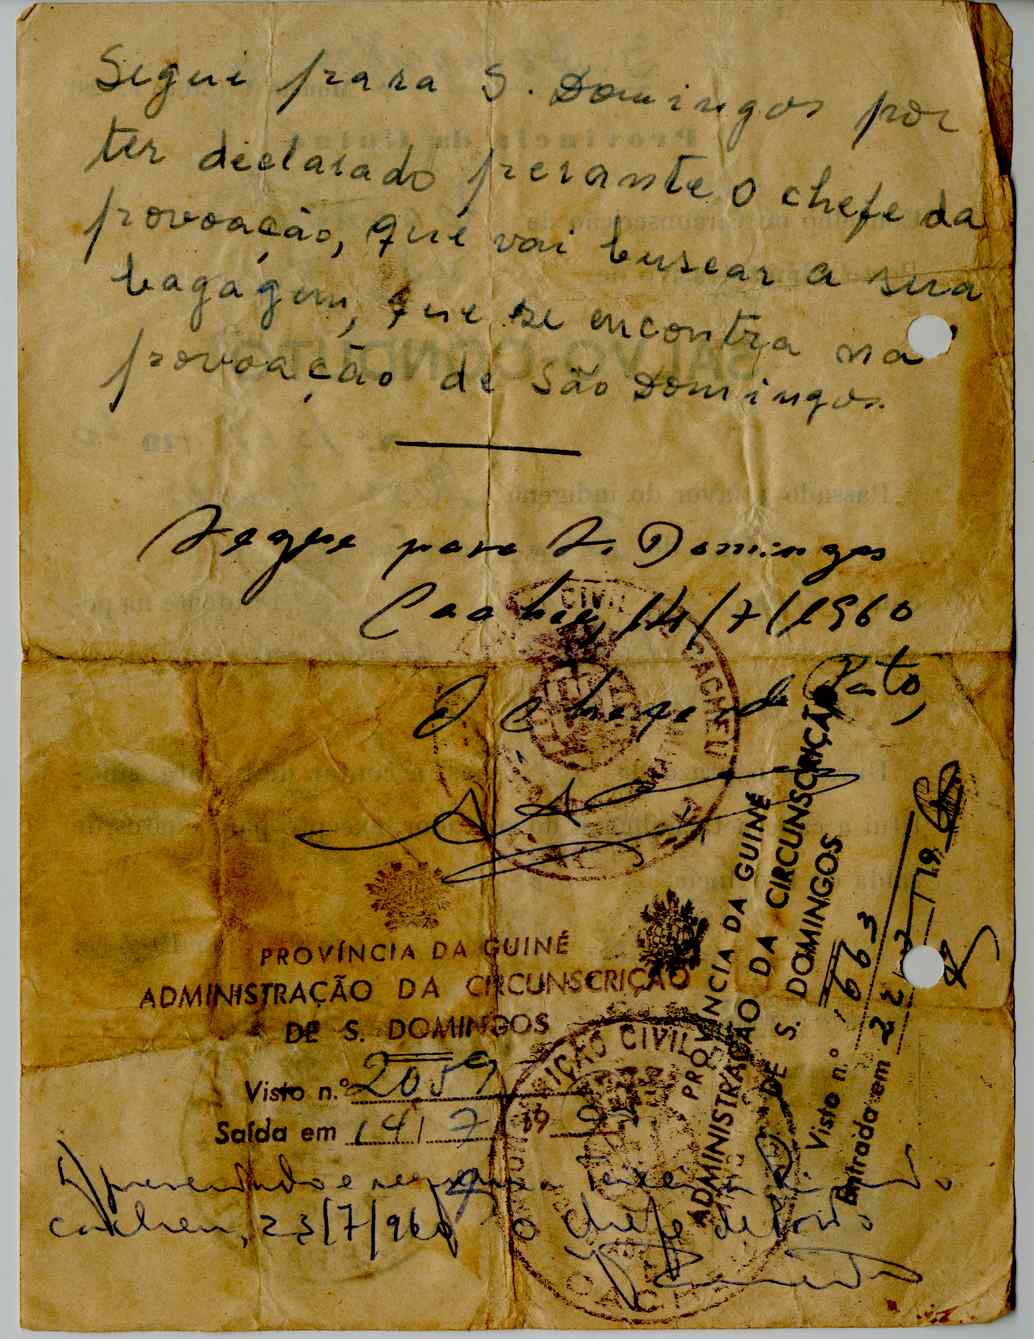 Segui para S. Domingos por
ter declarado perante o chefe da
povoação, que vai buscar a sua
bagagem, que se encontra na
povoação de São Domingos.
Segue para S. Domingos
Cacheu, 14/7/1960
O Chefe de Posto,
CIVIL
CACHEU
PROVÍNCIA DA GUINÉ
ADMINISTRAÇÃO DA CIRCUNSCRIÇÃO
DE S. DOMINGOS
Visto n.º 2059
Saída em 14/7/19
PROVÍNCIA DA GUINÉ
ADMINISTRAÇÃO DA CIRCUNSCRIÇÃO
DE S. DOMINGOS
Visto n.º 1963
Entrada em 22/7/19
CIVIL
Apresentado e
Cacheu, 23/7/960 O Chefe de Posto